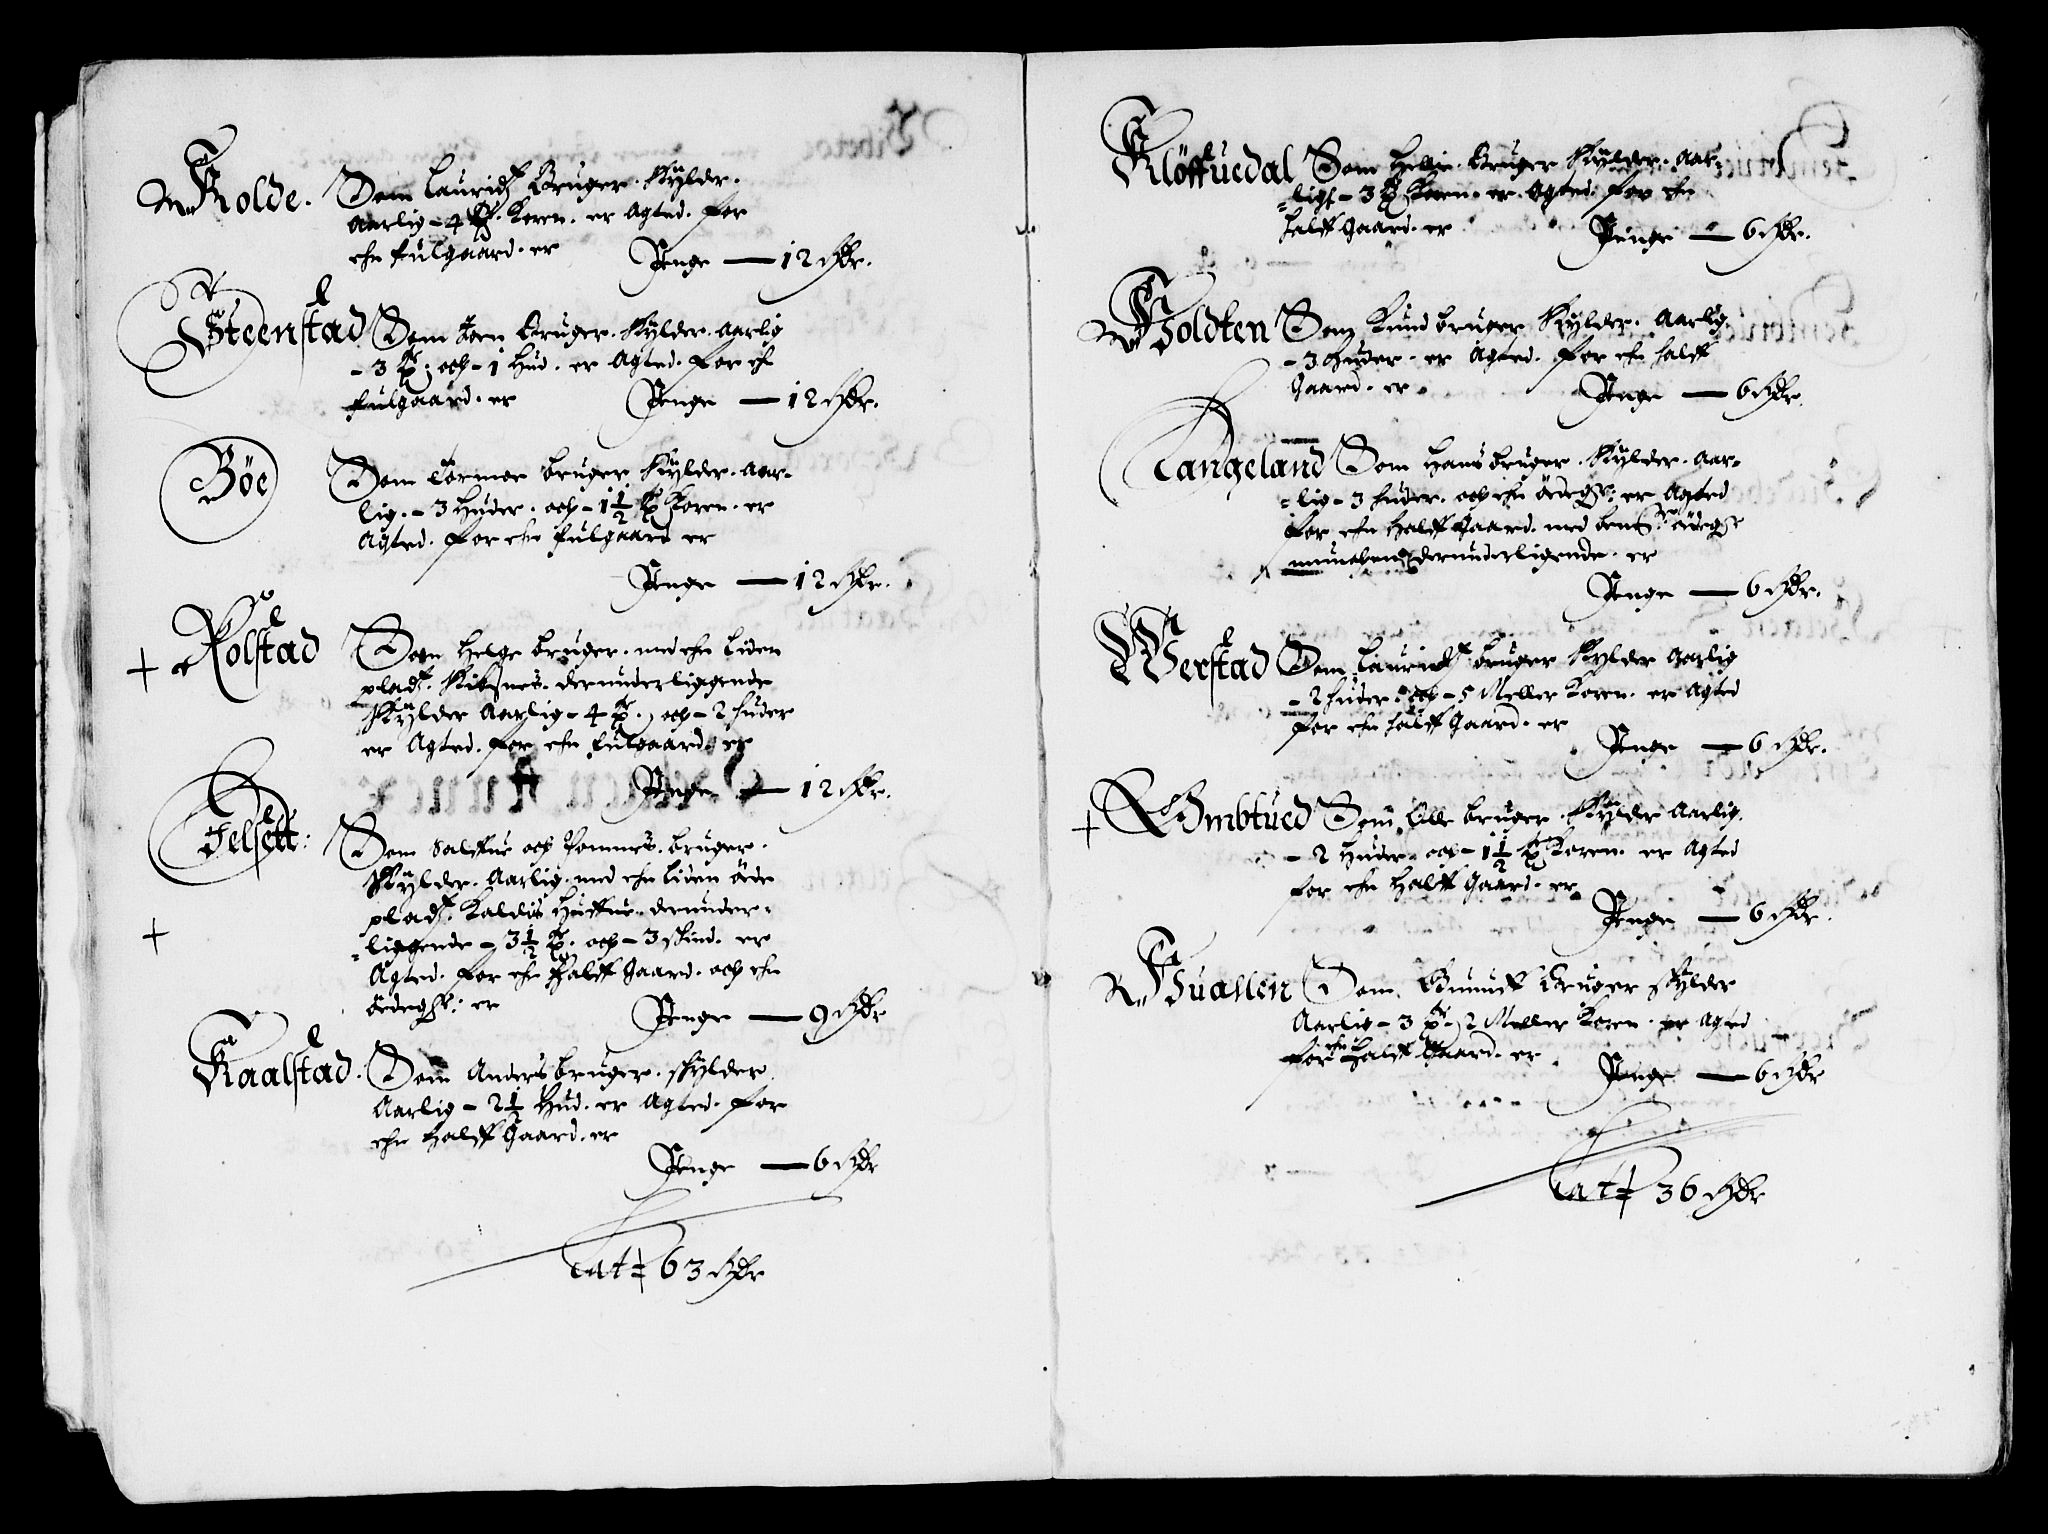 Kolde. Som Lauridz Bruger. Skylder.
Aarlig - 4 ℔. Korn. er Agted. for
ehn fulgaard. er
Penge — 12 Ort.
Steenstad Som Joen Bruger. Skylder. Aarlig
- 3 ℔. och - 1 Hud. er Agted. for eh
fulgaard. er
Penge — 12 Ort.
Böe Som Tormor bruger. Skylder. Aar-
lig. - 3 Huder. och - 1½ ℔ Korn. er
Agted. for ehn fulgaard er
Penge — 12 Ort.
+ Rolstad Som Helge bruger. med ehn Liden
pladz. Skibsnes. derunderliggende
Skylder Aarlig - 4 ℔. och - 2 huder
er Agted. for ehn fulgaard. er
Penge — 12 Ort.
Jelsett: Som och Pommes. bruger.
Skylder. Aarlig. med ehn Liden öde
pladz. derunder-
+ =liggende - 3½ ℔. och - 3 skind. er
Agted. for ehn Halff Gaard. och ehn
ödegr: er
Penge — 9 Ort
Kaalstad. Som Anders bruger. skylder
Aarlig - 2½ Hud. er Agted. for
ehn halff Gaard. er
Penge — 6 Ort
Lat= 63 Ort
Klöffuedal Som Helie Bruger Skylder. Aar-
=lig - 3 ℔ Korn. er Agted. for ehn
halff Gaard. er
Penge — 6 Ort.
Holdten Som Knud bruger Skylder. Aarlig.
- 3 Huder. er Agted. for ehn halff
Gaard. er
Penge — 6 Ort.
Langeland Som Hans bruger. Skylder. Aar-
=lig - 3 huder. och ehn ödegr: er Agted
for ehn Halff Gaard. med ödegr
derunderligende. er
Penge — 6 Ort.
Werstad Som Lauridz bruger Skylder Aarlig
- 2 huder. och - 5 Meller Korn. er Agted
for ehn halff Gaard. er
Penge — 6 Ort.
+ Ombtued Som Olle bruger. Skylder Aarlig.
- 2 Huder. och - 1½ ℔ Korn. er Agted
for ehn Halff Gaard. er
Penge — 6 Ort.
Huallen Som Gunuld Bruger skylder
Aarlig - 3 ℔ - 2 Meller Korn. er Agted
for ehn Halff Gaard. er
Penge — 6 Ort
Lat= 36 Ort